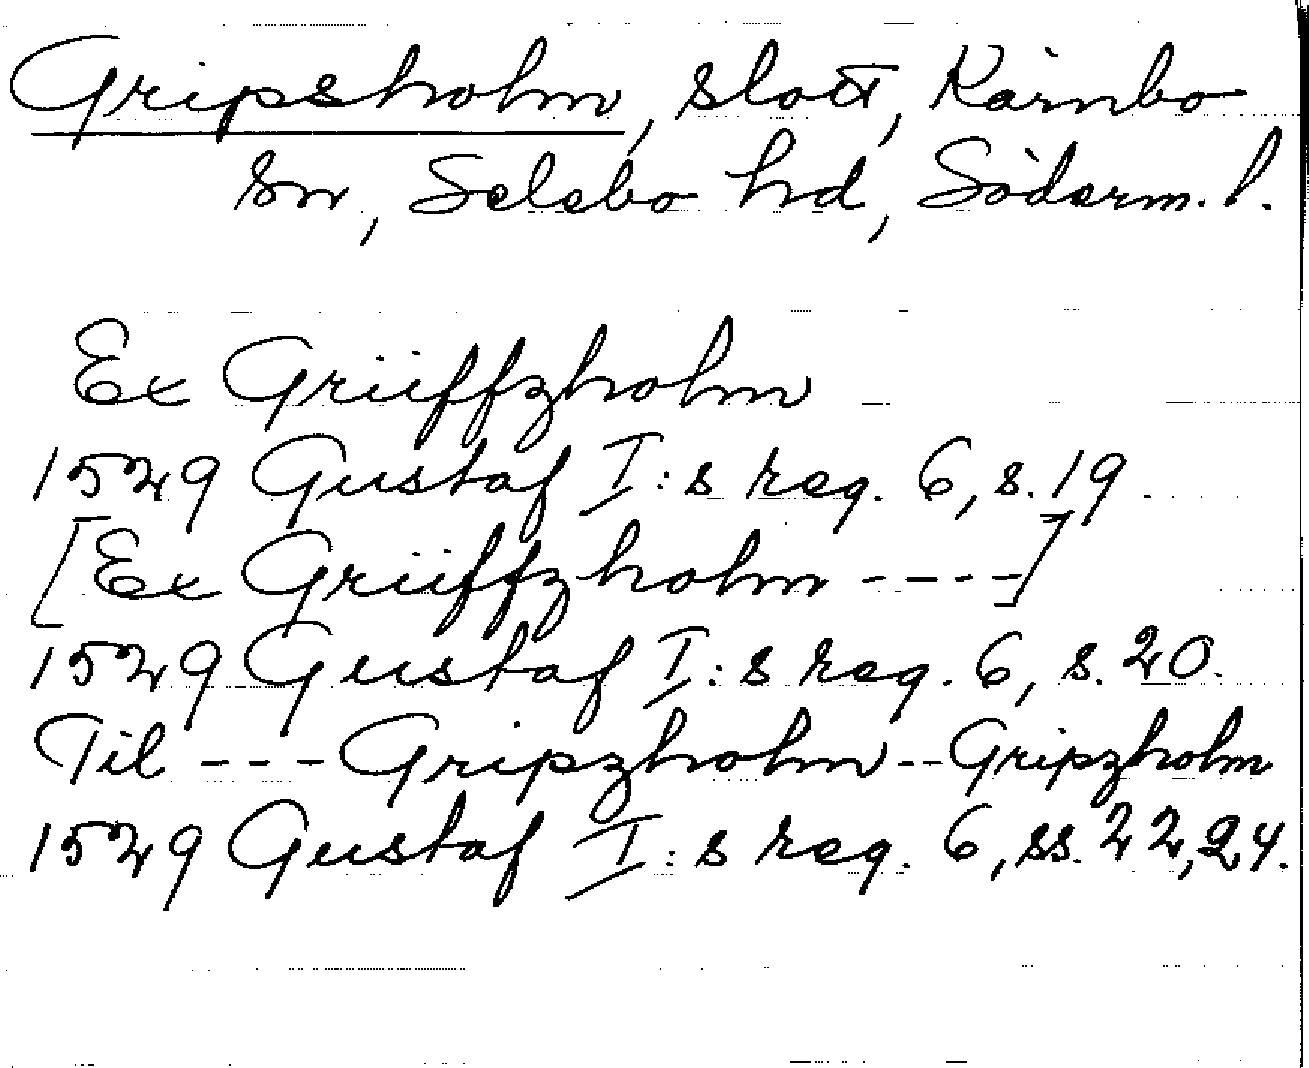 Gripsholm, slott, Kärnbo
sn, Selebo hd, Söderm. l.
Ex Griiffzholm
1529 Gustaf I:s reg. 6, s. 19
[Ex Griiffzholm ----]
1529 Gustaf I:s reg. 6, s. 20.
Til --- Gripzholm -- Gripzholm
1529 Gustaf I:s reg. 6, ss. 22, 24.